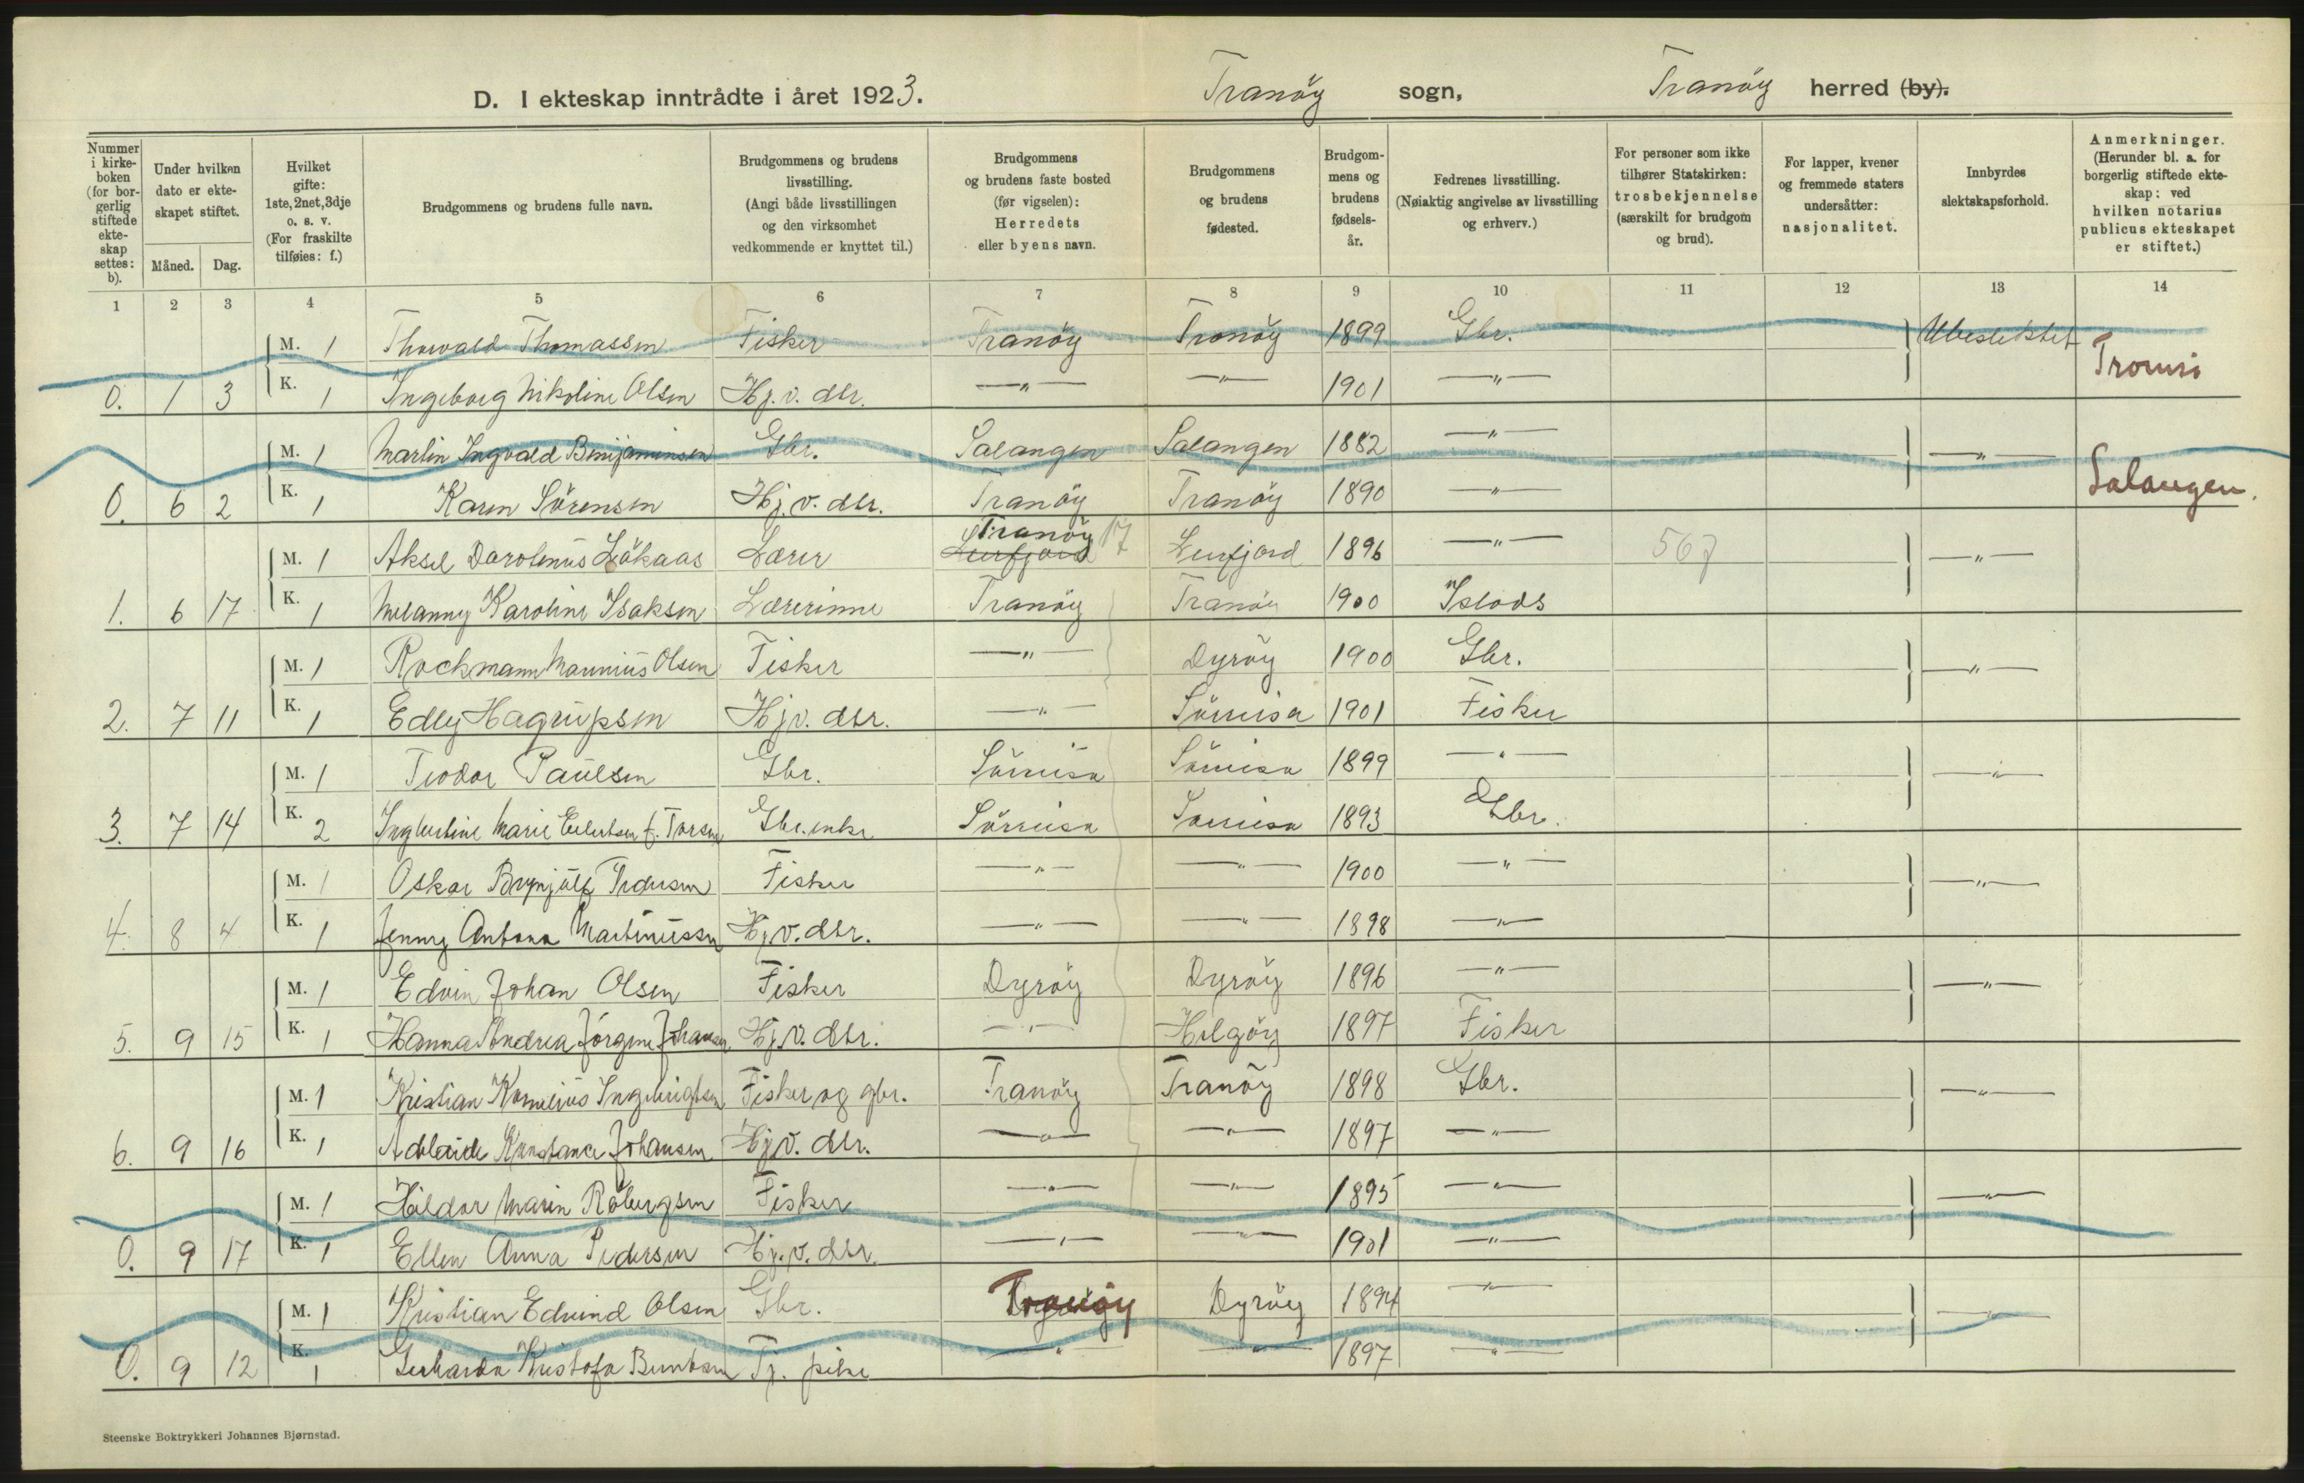 D. I ekteskap inntrådte i året 1923. Tranöy sogn, Tranöy herred (by).
Nummer i kirkeboken (for borgerlig stiftede ekteskap settes: b).
Under hvilken dato er ekteskapet stiftet.
Måned. Dag.
Hvilket gifte: 1ste, 2net, 3dje o. s. v. (For fraskilte tilføies: f.)
Brudgommens og brudens fulle navn.
Brudgommens og brudens livsstilling. (Angi både livsstillingen og den virksomhet vedkommende er knyttet til.)
Brudgommens og brudens faste bosted (før vigselen): Herredets eller byens navn.
Brudgommens og brudens fødested.
Brudgommens og brudens fødselsår.
Fedrenes livsstilling. (Nøiaktig angivelse av livsstilling og erhverv.)
For personer som ikke tilhører Statskirken: trosbekjennelse (særskilt for brudgom og brud).
For lapper, kvener og fremmede staters undersåtter: nasjonalitet.
Innbyrdes slektskapsforhold.
Anmerkninger. (Herunder bl. a. for borgerlig stiftede ekteskap: ved hvilken notarius publicus ekteskapet er stiftet.)
1 2 3 4 5 6 7 8 9 10 11 12 13 14
M. 1 Thorvald Thomassen Fisker Tranöy Tranöy 1899 Gbr. Ubeslektet
0. 1 3 K. 1 Ingeborg Nikoline Olsen Hj. v. dtr. —"— —"— 1901 —"— Tromsö
M. 1 Martin Ingvald Benjaminsen Gbr. Salangen Salangen 1882 —"— —"—
0. 6 2 K. 1 Karen Sörensen Hj. v. dtr. Tranöy Tranöy 1890 —"— Salangen.
M. 1 Aksel Dorotenius Lökaas Lærer Leirfjord Tranöy 17 Leirfjord 1896 —"— 567 —"—
1. 6 17 K. 1 Melanny Karoline Isaksen Lærerinne Tranöy Tranöy 1900
M. 1 Rockmann Mannius Olsen Fisker —"— Dyröy 1900 Gbr. —"—
2. 7 11 K. 1 Edly Hagrupsen Hj v. dtr. —"— Sörreisa 1901 Fisker
M. 1 Teodor Paulsen Gbr. Sörreisa Sörreisa 1899 —"— —"—
3. 7 14 K. 2 Ingbertine Marie Eilertsen f. Torsen Gbr.enke Sörreisa Sörreisa 1893 Gbr.
M. 1 Oskar Brynjulf Pedersen Fisker —"— —"— 1900 —"— —"—
4. 8 4 K. 1 Jenny Antona Martinussen Hj v. dtr. —"— —"— 1898 —"—
M. 1 Edvin Johan Olsen Fisker Dyröy Dyröy 1896 —"— —"—
5. 9 15 K. 1 Hanna Andrea Jörgine Johansen Hj. v. dtr. —"— Helgöy 1897 Fisker
M. 1 Kristian Kornelius Ingebrigtsen Fisker og gbr. Tranöy Tranöy 1898 Gbr. —"—
6. 9 16 K. 1 Adelaide Konstance Johansen Hj v. dtr. —"— —"— 1897 —"—
M. 1 Hildor Marin Robergsen Fisker —"— —"— 1895 —"— —"—
0. 9 17 K. 1 Ellen Anna Pedersen Hj. v. dtr. —"— —"— 1901 —"—
M. 1 Kristian Edvind Olsen Gbr. Tranöy Dyröy 1894 —"— —"—
0. 9 12 K. 1 Gerharda Kristofa Berntsen Tj. pike —"— —"— 1897 —"—
Steenske Boktrykkeri Johannes Bjørnstad.